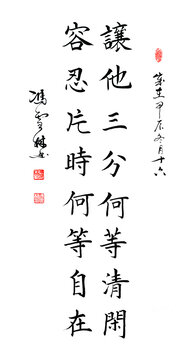 歲在甲辰冬月十六
讓他三分何等清閑
容忍片時何等自在